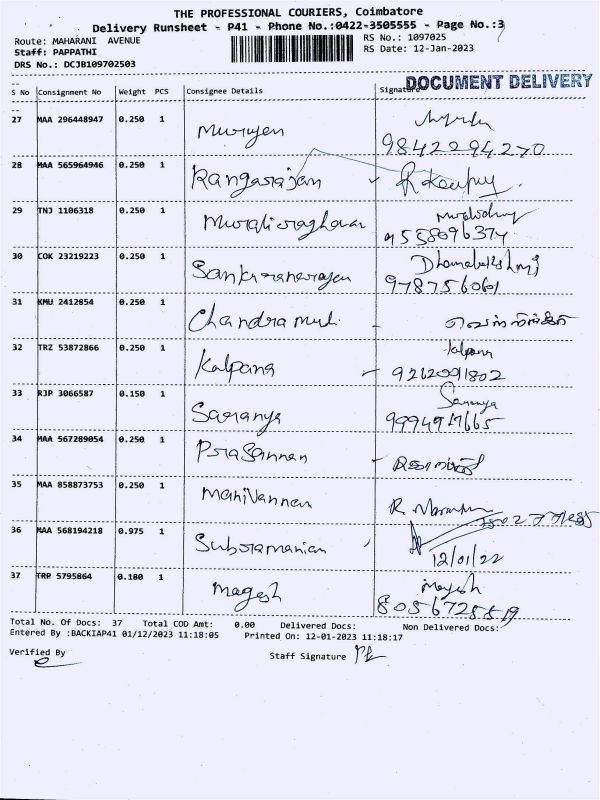 THE PROFESSIONAL COURIERS, Coimbatore
Delivery Runsheet - P41 - Phone No.:0422-3505555 - Page No.:3
Route: MAHARANI AVENUE
RS No.: 1097025
Staff: PAPPATHI
RS Date: 12-Jan-2023
DRS No.: DCJB109702503
DOCUMENT DELIVERY
S No Consignment No Weight PCS Consignee Details Signature
27 MAA 296448947 0.250 1 Murugen
9842294270
28 MAA 565964946 0.250 1 Rangarajan
29 TNJ 1106318 0.250 1 Muraliraghavan
9558096374
30 COK 23219223 0.250 1
978756061
31 KMU 2412854 0.250 1 Chandra
32 TRZ 53872866 0.250 1 Kalpana Kalpana
9262091802
33 RJP 3066587 0.150 1 Saranya Saranya
9994917665
34 MAA 567289054 0.250 1 Prasannan
35 MAA 858873753 0.250 1 Manivannan
36 MAA 568194218 0.975 1 Subramanian
12/01/22
37 TRP 5795864 0.180 1 Magesh Magesh
8056728519
Total No. Of Docs: 37 Total COD Amt: 0.00 Delivered Docs: Non Delivered Docs:
Entered By :BACKIAP41 01/12/2023 11:18:05 Printed On: 12-01-2023 11:18:17
Verified By
Staff Signature